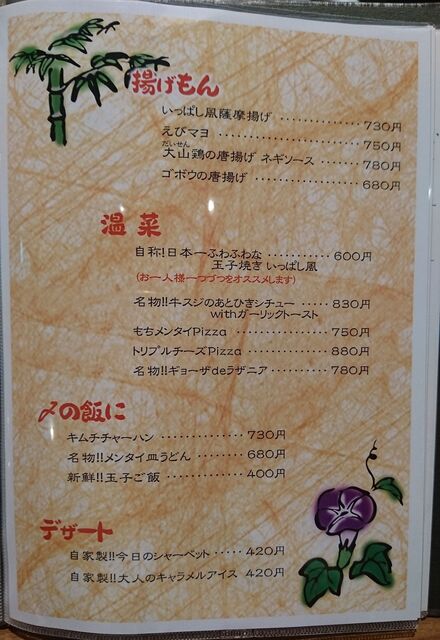 揚げもん
いっぱし風薩摩揚げ ・・・・・・・・・・ 730円
えびマヨ ・・・・・・・・・・・・・・ 750円
だいせん
大山鶏の唐揚げ ネギソース ・・・・・・ 780円
ゴボウの唐揚げ ・・・・・・・・・・・・ 680円
温菜
自称!日本一ふわふわな ・・・・・・・・・・・ 600円
玉子焼き いっぱし風
(お一人様一つづつをオススメします)
名物!!牛スジのあとひきシチュー ・・・・・ 830円
withガーリックトースト
もちメンタイPizza ・・・・・・・・・・・・・ 750円
トリプルチーズPizza ・・・・・・・・・・・ 880円
名物!!ギョーザdeラザニア ・・・・・・・・・・ 780円
〆の飯に
キムチチャーハン ・・・・・・・・・・・・・・ 730円
名物!!メンタイ皿うどん ・・・・・・・・ 680円
新鮮!!玉子ご飯 ・・・・・・・・・・・・・・ 400円
デザート
自家製!!今日のシャーベット ・・・・・ 420円
自家製!!大人のキャラメルアイス 420円